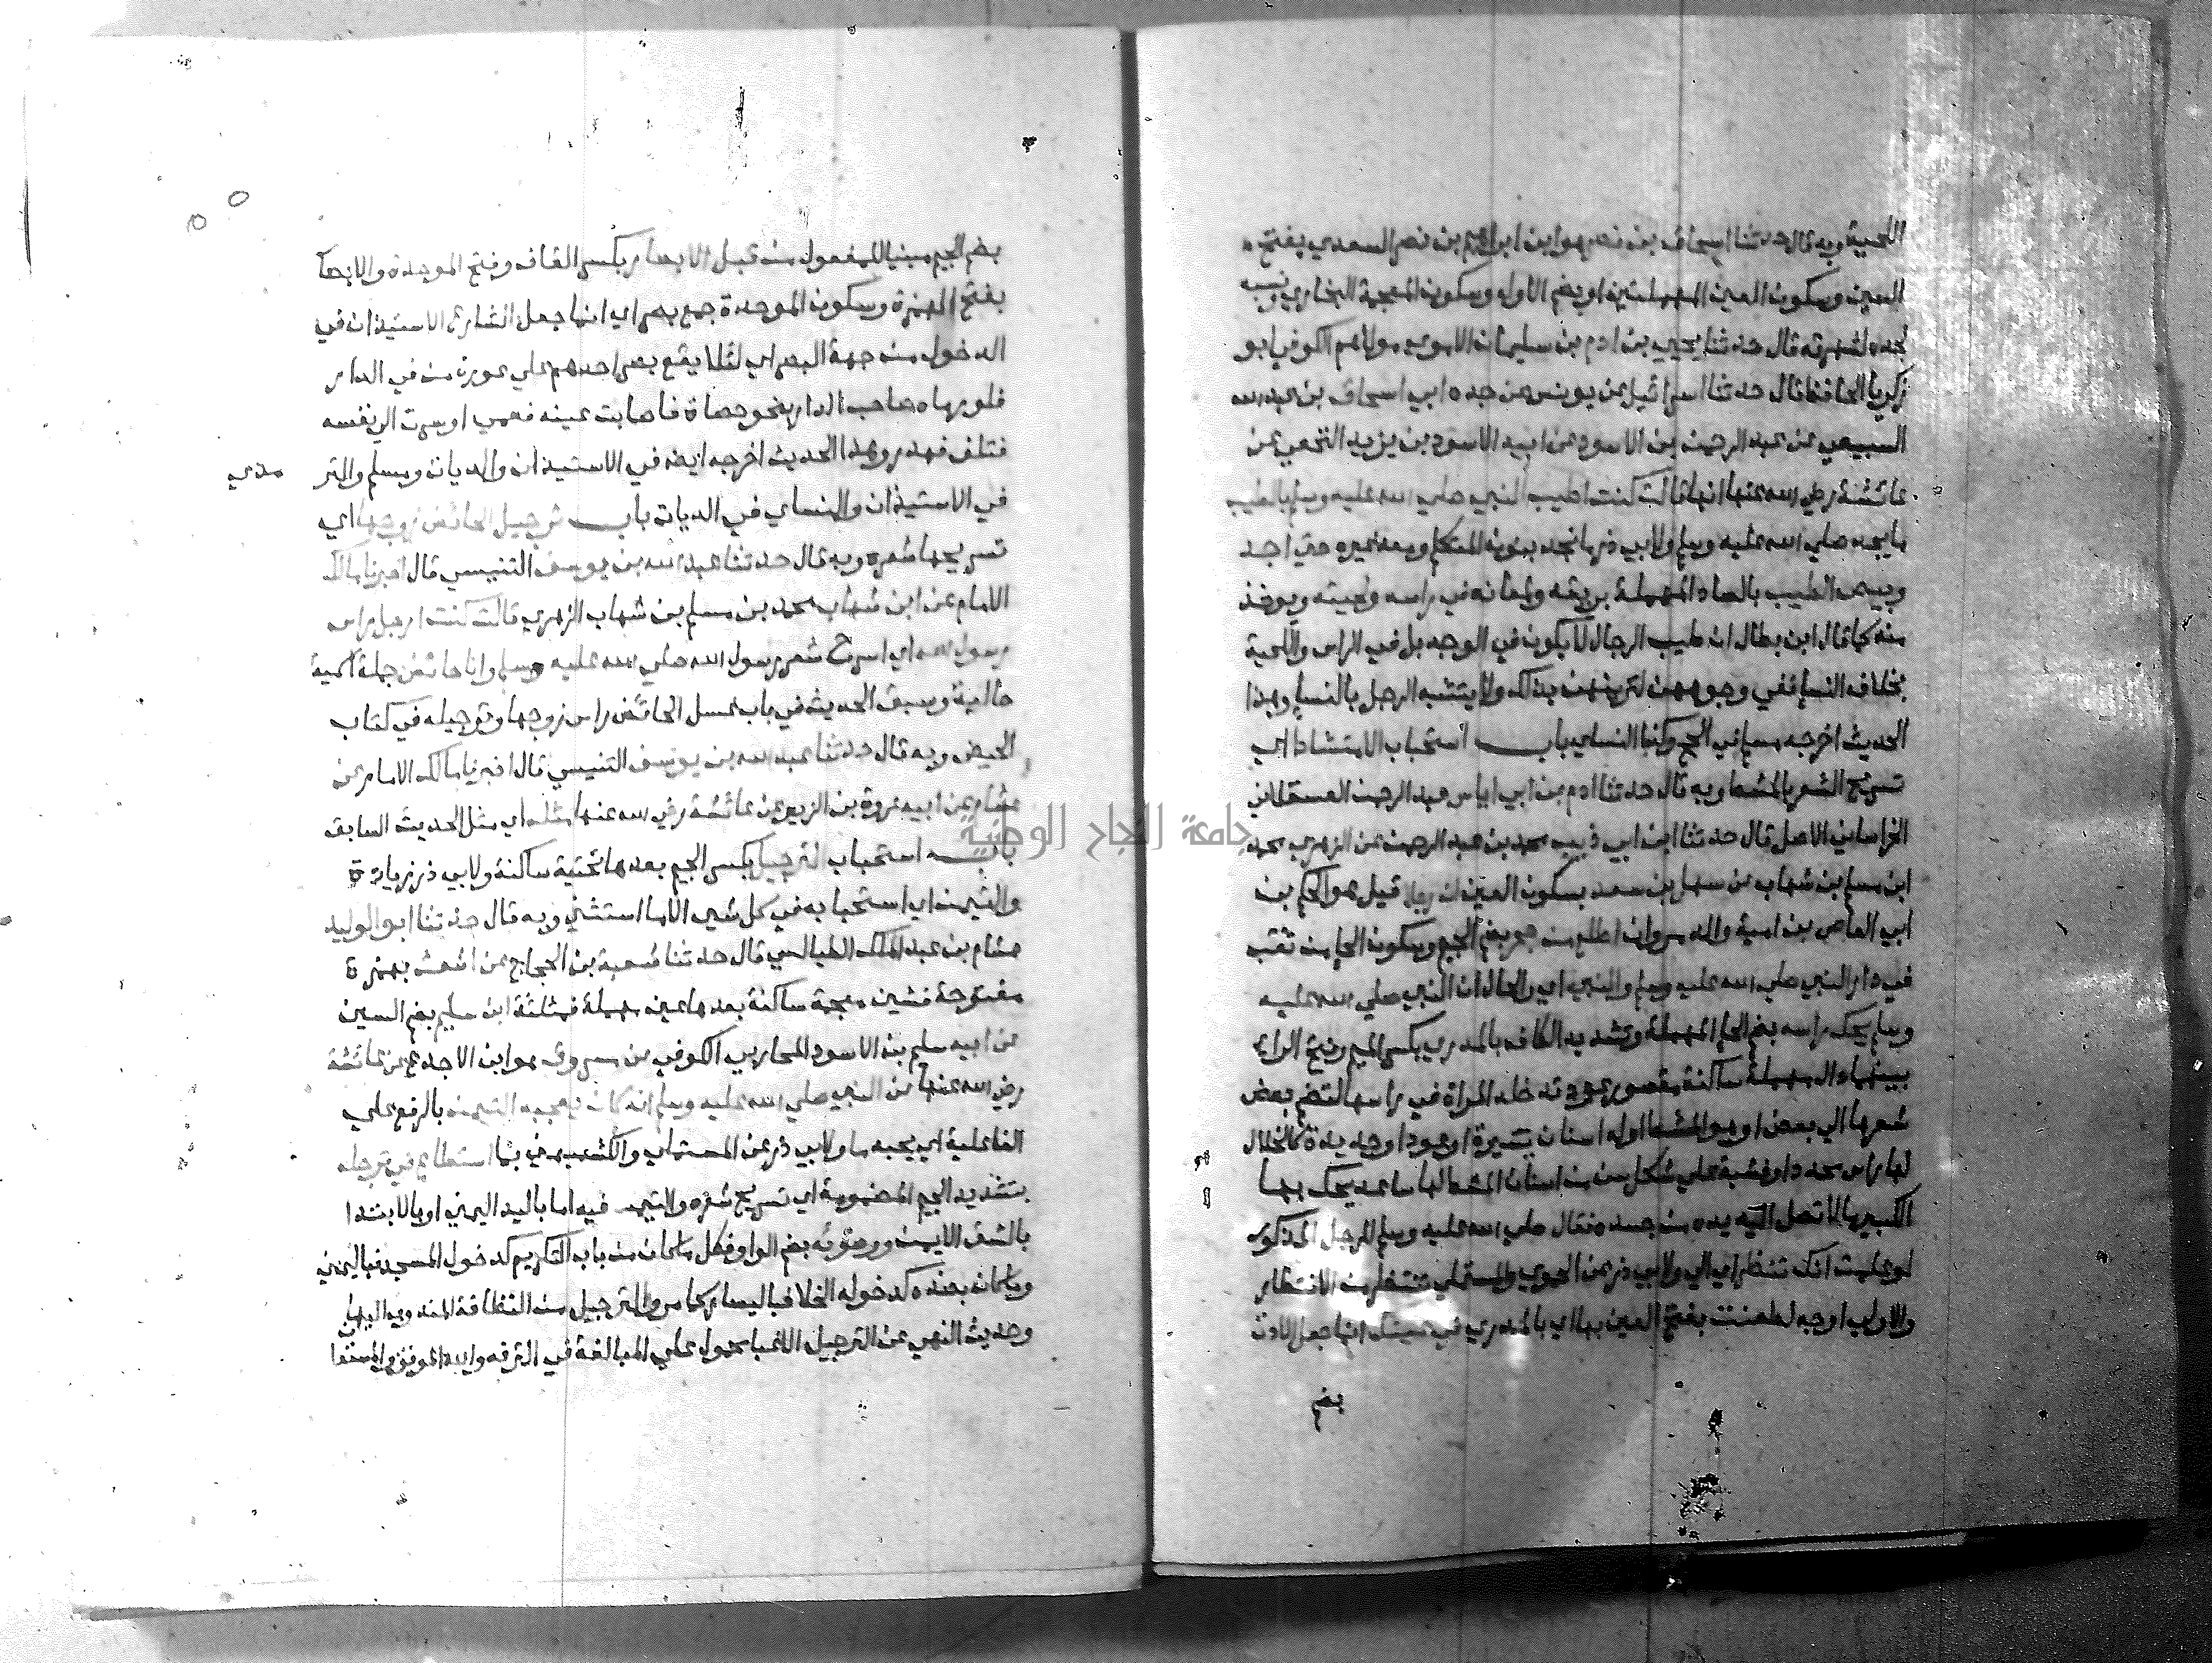 اللحية وبه قال حدثنا اسحاق بن نصر هو ابن ابراهيم بن نصر السعدي بفتح
السين وسكون العين المهملتين او بضم الاول وسكون المعجمة البخاري نسبه
لجده لشهرته قال حدثنا يحيي بن ادم بن سليمان الاموي مولاهم الكوفي ابو
زكريا الحافظ قال حدثنا اسرائيل عن يونس عن جده ابي اسحاق بن عبد الله
السبيعي عن عبد الرحمن بن الاسود عن ابيه الاسود بن يزيد النخعي عن
عائشة رضي الله عنها انها قالت كنت اطيب النبي صلي الله عليه وسلم باطيب
ما يجد صلي الله عليه وسلم ولابي ذر ما نجد بنون المتكلم ومعه غيره حتي اجد
وبيص الطيب بالصاد المهملة بريقه ولمعانه في راسه ولحيته ويوخذ
منه كما قال ابن بطال ان طيب الرجال لا يكون في الوجه بل في الراس واللحية
بخلاف النسا ففي وجوههن لتزينهن بذلك ولا يتشبه الرجل بالنسا وهذا
الحديث اخرجه مسلم في الحج وكذا النساي باب استحباب الامتشاط اي
تسريح الشعر بالمشط وبه قال حدثنا ادم بن ابي اياس عبد الرحمن العسقلاني
الخراساني الاصل قال حدثنا ابن ابي ذيب محمد بن عبد الرحمن عن الزهري محمد
ابن مسلم بن شهاب عن سهل بن سعد بسكون العين ان رجلا قيل هو الحكم بن
ابي العاص بن امية والد مروان اطلع من جحر بضم الجيم وسكون الحا من ثقب
في دار النبي صلي الله عليه وسلم والنبي اي والحال ان النبي صلي الله عليه
وسلم يحك راسه بضم الحا المهملة وتشديد الكاف بالمدري بكسر الميم وفتح الرا
بينهما دال مهملة ساكنة مقصور عود تدخله المراة في راسها لتضم بعض
شعرها الي بعض او هو المشط او له اسنان يسيرة او عود او حديدة كالخلال
لها راس محدد او خشبة علي شكل سن من اسنان المشط لها ساعد يحك بها
الكبير ما لا تصل اليه يده من جسده فقال صلي الله عليه وسلم للرجل المذكور
لو علمت انك تنظر اي الي ولابي ذر عن الحموي والمستملي تنتظر من الانتظار
والاولي اوجه لطعنت بفتح العين بها اي بالمدري في عينك انما جعل الاذن
بضم
بضم الجيم مبنيا للمفعول من قبل الابصار بكسر القاف وفتح الموحدة والابصار
بفتح الهمزة وسكون الموحدة جمع بصر اي انما جعل الشارع الاستيذان في
الدخول من جهة البصر اي لئلا يقع بصر احدهم علي عورة من في الدار
فلو رماه صاحب الدار بنحو حصاة فاصابت عينه فعمي او سرت الي نفسه
فتلف فهدر وهذا الحديث اخرجه ايضا في الاستيذان والديات ومسلم والتر
مذي
في الاستيذان والنساي في الديات باب ترجيل الحائض زوجها اي
تسريحها شعره وبه قال حدثنا عبد الله بن يوسف التنيسي قال اخبرنا مالك
الامام عن ابن شهاب محمد بن مسلم بن شهاب الزهري قالت كنت ارجل راس
رسول الله اي اسرح شعر رسول الله صلي الله عليه وسلم وانا حائض جملة اسمية
حالية وسبق الحديث في باب غسل الحائض راس زوجها وترجيله في كتاب
الحيض وبه قال حدثنا عبد الله بن يوسف التنيسي قال اخبرنا مالك الامام عن
هشام عن ابيه عروة بن الزبير عن عائشة رضي الله عنها مثله اي مثل الحديث السابق
باب استحباب الترجيل بكسر الجيم بعدها تحتية ساكنة ولابي ذر زيادة
والتيمن اي استحبابه في كل شيء الا ما استثني وبه قال حدثنا ابو الوليد
هشام بن عبد الملك الطيالسي قال حدثنا شعبة بن الحجاج عن اشعث بهمزة
مفتوحة فشين معجمة ساكنة بعدها عين مهملة فمثلثة ابن سليم بضم السين
عن ابيه سليم بن الاسود المحاربي الكوفي عن مسروق هو ابن الاجدع عن عائشة
رضي الله عنها عن النبي صلي الله عليه وسلم انه كان يعجبه التيمن بالرفع علي
الفاعلية اي يحبه ما ولابي ذر عن المستملي والكشميهني بما استطاع في ترجله
بتشديد الجيم المضمومة اي تسريح شعره والتيمن فيه اما باليد اليمني او بالابتدا
بالشق الايمن ووضوئه بضم الواو فكل ما كان من باب التكريم كدخول المسجد فباليمني
وما كان بضده كدخول الخلا فباليسار كما مر والترجيل من النظافة المندوب اليها
وحديث النهي عن الترجيل الا غبا محمول علي المبالغة في الترفه والله الموفق والمستعان
جامعة النجاح الوطنية